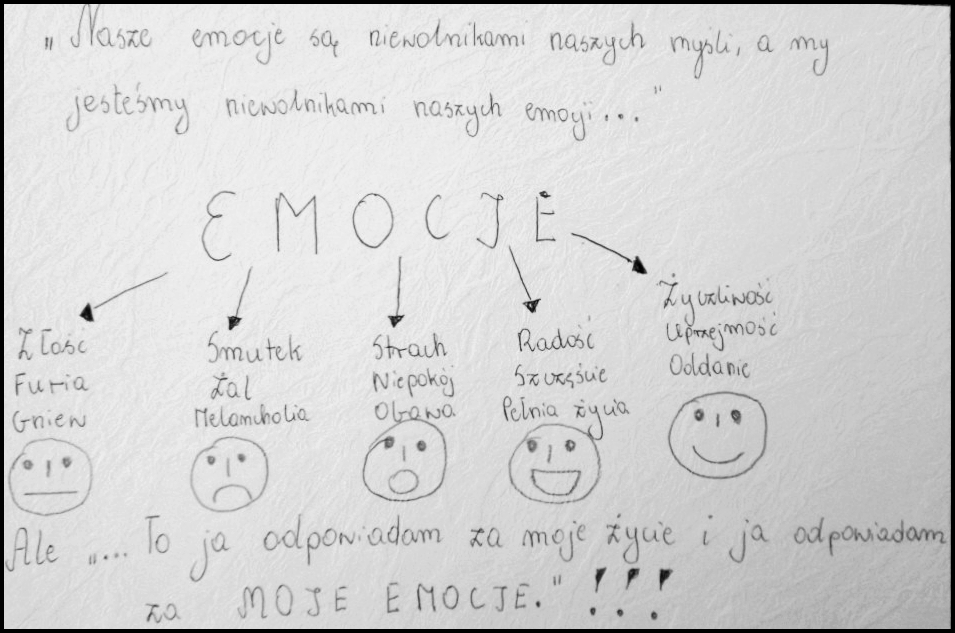 „Nasze emocje są niewolnikami naszych myśli, a my
jesteśmy niewolnikami naszych emocji..."
EMOCJE
Złość
Furia
Gniew
Smutek
Żal
Melancholia
Strach
Niepokój
Obawa
Radość
Szczęście
Pełnia życia
Życzliwość
Uprzejmość
Oddanie
Ale „... To ja odpowiadam za moje życie i ja odpowiadam
za MOJE EMOCJE." !!!